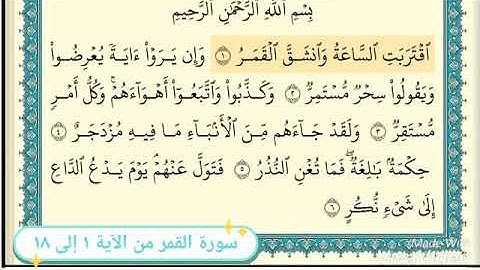 بِسْمِ ٱللَّهِ ٱلرَّحْمَٰنِ ٱلرَّحِيمِ
ٱقْتَرَبَتِ ٱلسَّاعَةُ وَٱنشَقَّ ٱلْقَمَرُ ١ وَإِن يَرَوْا۟ ءَايَةً يُعْرِضُوا۟
وَيَقُولُوا۟ سِحْرٌ مُّسْتَمِرٌّ ٢ وَكَذَّبُوا۟ وَٱتَّبَعُوٓا۟ أَهْوَآءَهُمْ ۚ وَكُلُّ أَمْرٍ
مُّسْتَقِرٌّ ٣ وَلَقَدْ جَآءَهُم مِّنَ ٱلْأَنۢبَآءِ مَا فِيهِ مُزْدَجَرٌ ٤
حِكْمَةٌۢ بَٰلِغَةٌ ۖ فَمَا تُغْنِ ٱلنُّذُرُ ٥ فَتَوَلَّ عَنْهُمْ ۘ يَوْمَ يَدْعُ ٱلدَّاعِ
إِلَىٰ شَىْءٍ نُّكُرٍ ٦
سورة القمر من الآية ١ إلى ١٨